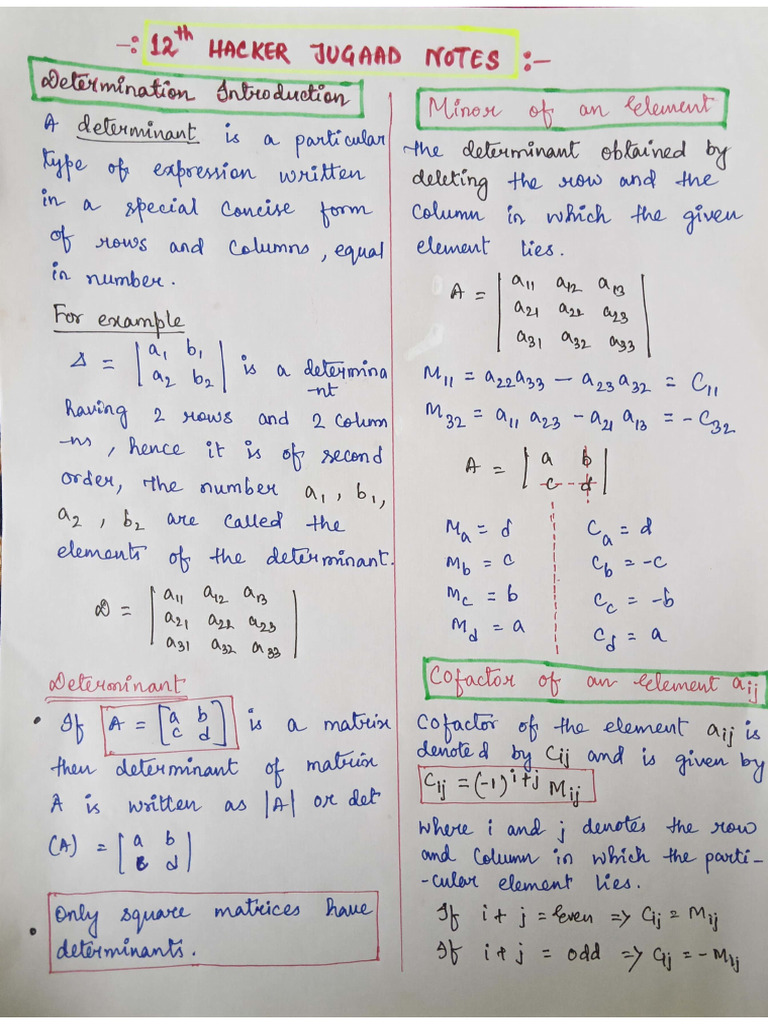 -: 12th HACKER JUGAAD NOTES :-
Determination Introduction
A determinant is a particular
type of expression written
in a special concise form
of rows and columns, equal
in number.
For example
Δ = | a₁ b₁ | is a determina
| a₂ b₂ | -nt
having 2 rows and 2 colum
-ns, hence it is of second
order, the number a₁, b₁,
a₂, b₂ are called the
elements of the determinant.
D = | a₁₁ a₁₂ a₁₃ |
| a₂₁ a₂₂ a₂₃ |
| a₃₁ a₃₂ a₃₃ |
Determinant
• If A = [ a b ] is a matrix
[ c d ]
then determinant of matrix
A is written as |A| or det
(A) = | a b |
| c d |
• Only square matrices have
determinants.
Minor of an Element
The determinant obtained by
deleting the row and the
column in which the given
element lies.
A = | a₁₁ a₁₂ a₁₃ |
| a₂₁ a₂₂ a₂₃ |
| a₃₁ a₃₂ a₃₃ |
M₁₁ = a₂₂a₃₃ - a₂₃a₃₂ = C₁₁
M₃₂ = a₁₁a₂₃ - a₂₁a₁₃ = -C₃₂
A = | a b |
| c d |
Mₐ = d Cₐ = d
M_b = c C_b = -c
M_c = b C_c = -b
M_d = a C_d = a
Cofactor of an Element aij
Cofactor of the element aij is
denoted by Cij and is given by
Cij = (-1)^i+j Mij
where i and j denotes the row
and column in which the parti-
-cular element lies.
If i + j = even => Cij = Mij
If i + j = odd => Cij = -Mij